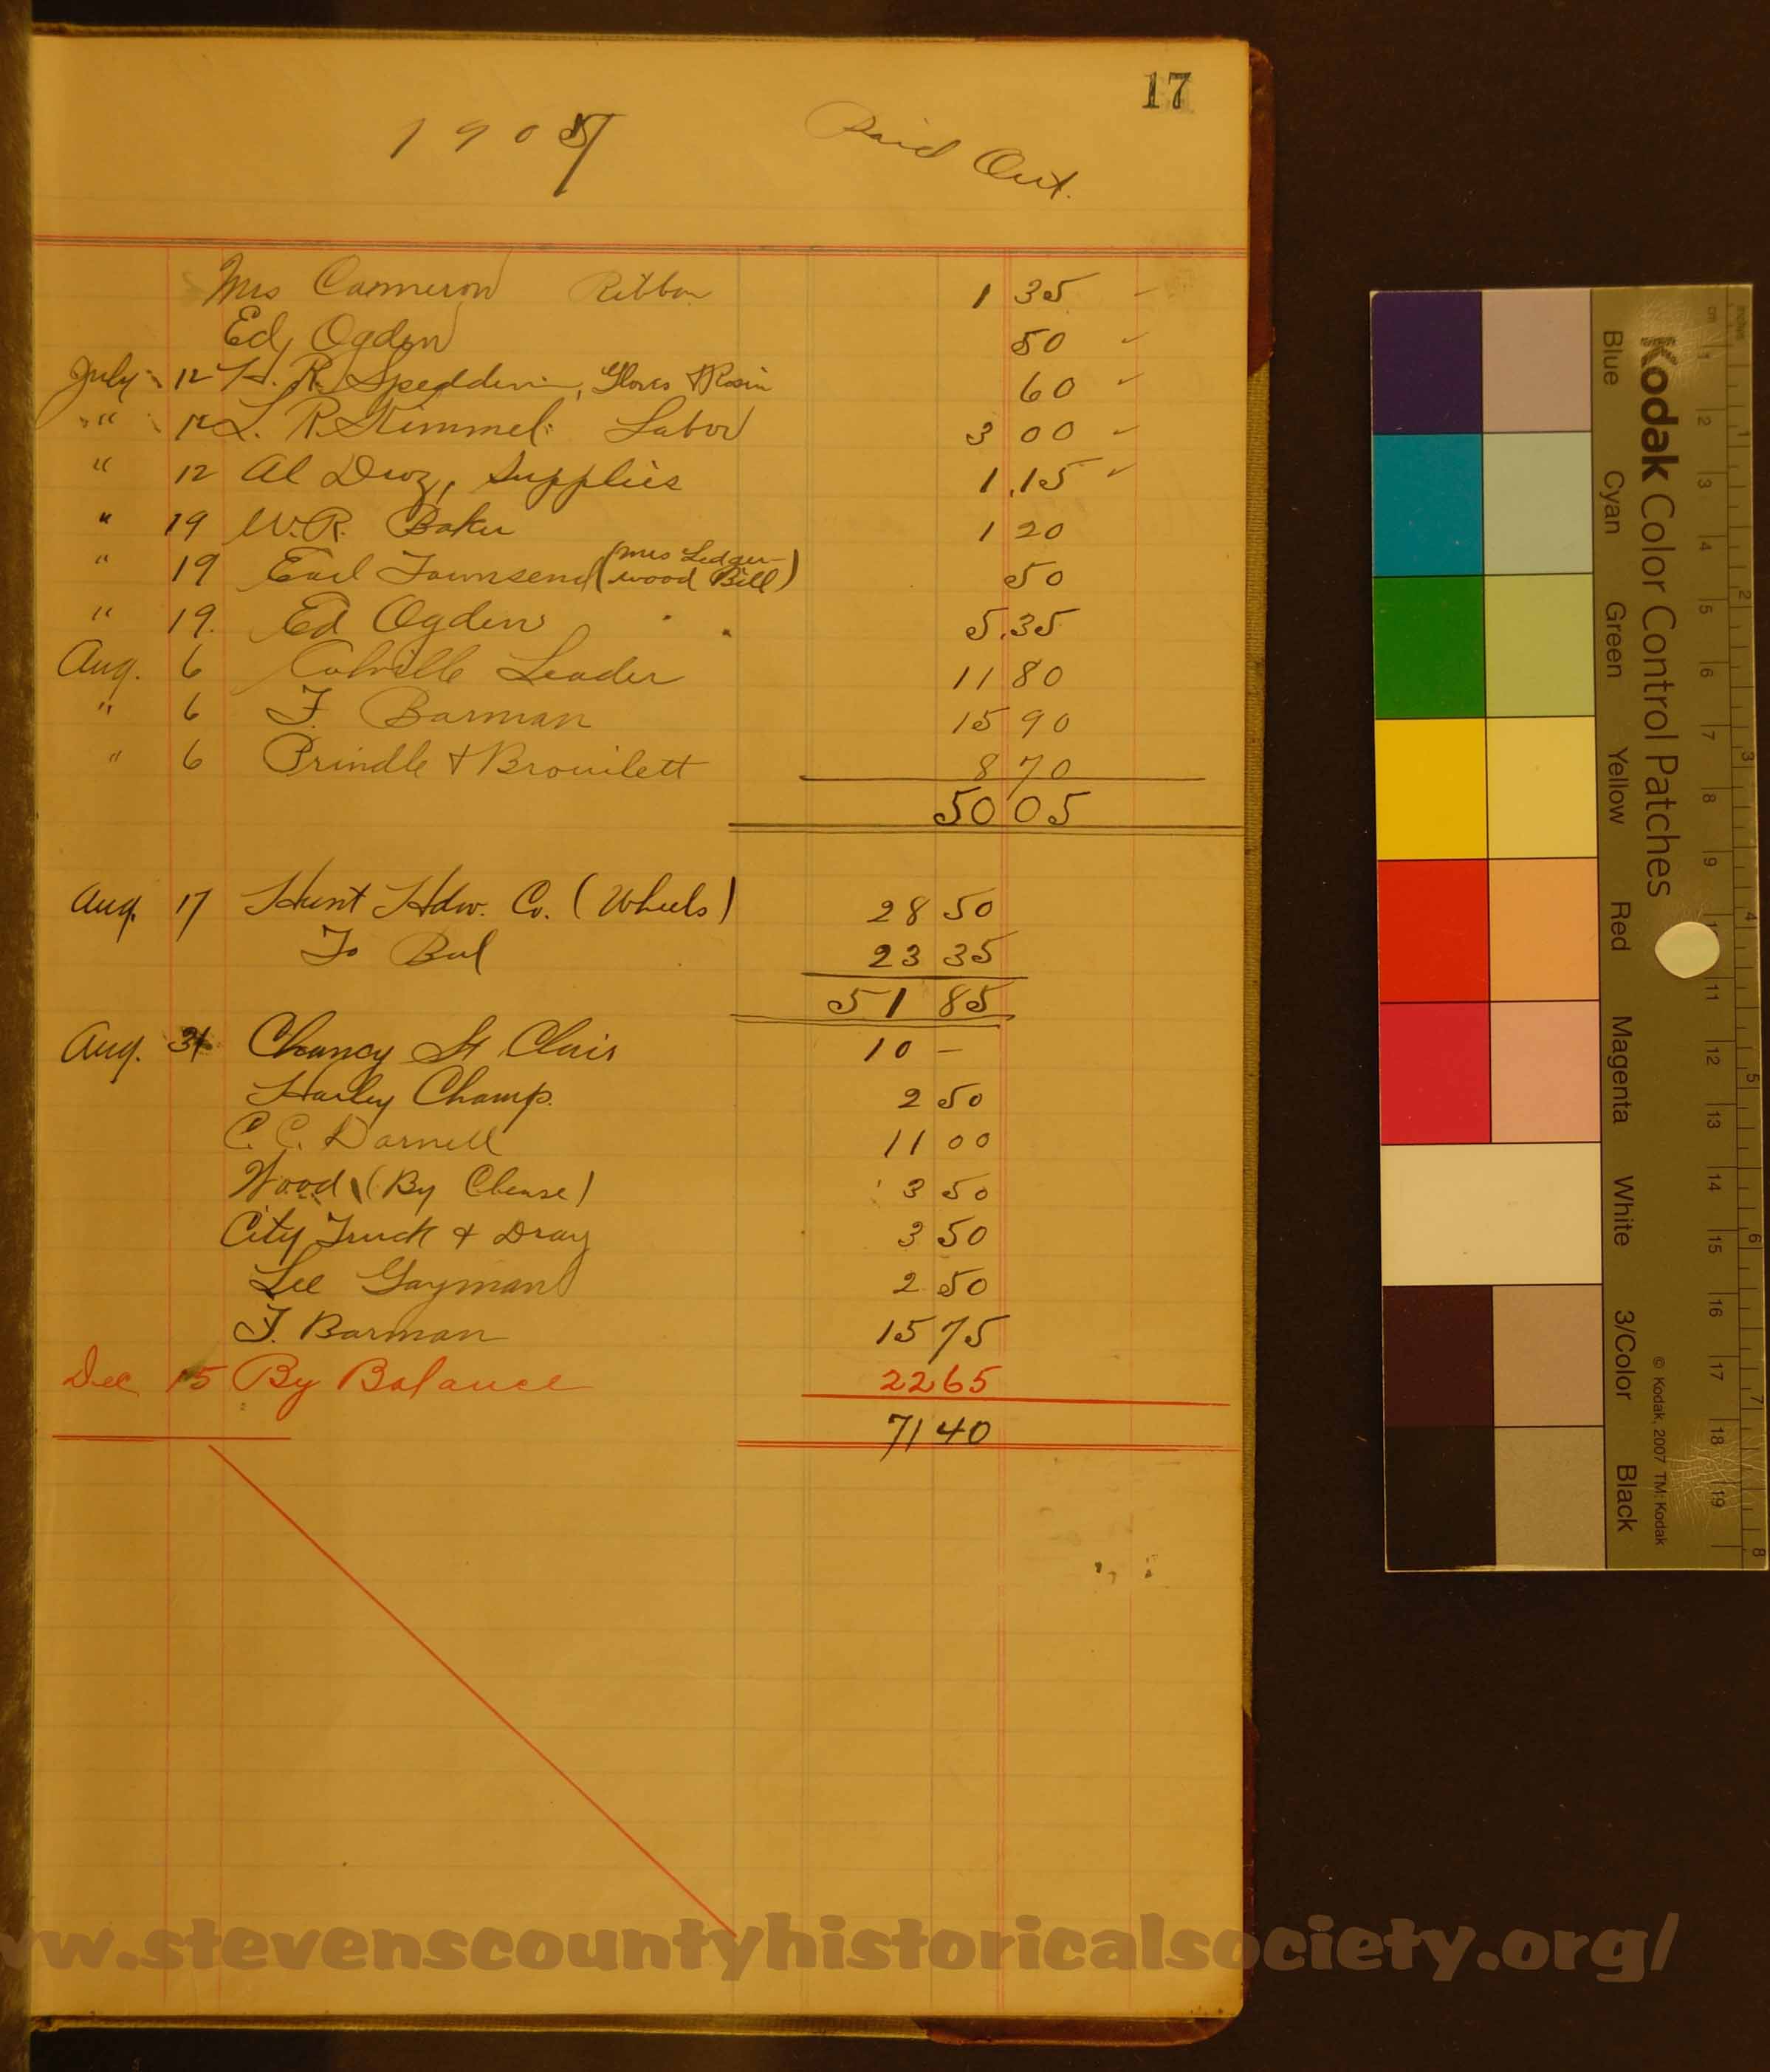 17
1907 Paid Out.
Mrs Cameron Ribbon 1 35
Ed Ogden 50
July 12 H. R. Spedden, Gloves & Rosin 60
" 12 L. R. Kimmel Labor 3 00
" 12 Al Droz, Supplies 1.15
" 19 W. R. Baker 1 20
" 19 Earl Townsend (Mrs Ledger-
wood Bill) 50
" 19. Ed Ogden 5.35
Aug. 6 Colville Leader 11 80
" 6 F. Barman 15 90
" 6 Prindle & Brouilett 8 70
50 05
Aug. 17 Hunt Hdw. Co. (Wheels) 28 50
To Bal 23 35
51 85
Aug. 31 Chancy St. Clair 10 —
Harley Champ. 2 50
C. C. Darnell 11 00
Wood (By ) 3 50
City Truck & Dray 3 50
Lee Gayman 2 50
F. Barman 15 75
Dec 15 By Balance 22 65
71 40
Kodak Color Control Patches
Blue Cyan Green Yellow Red Magenta White 3/Color Black
© Kodak, 2007 TM: Kodak
cm 1 2 3 4 5 6 7 8 9 10 11 12 13 14 15 16 17 18 19
inches 1 2 3 4 5 6 7 8
w.stevenscountyhistoricalsociety.org/